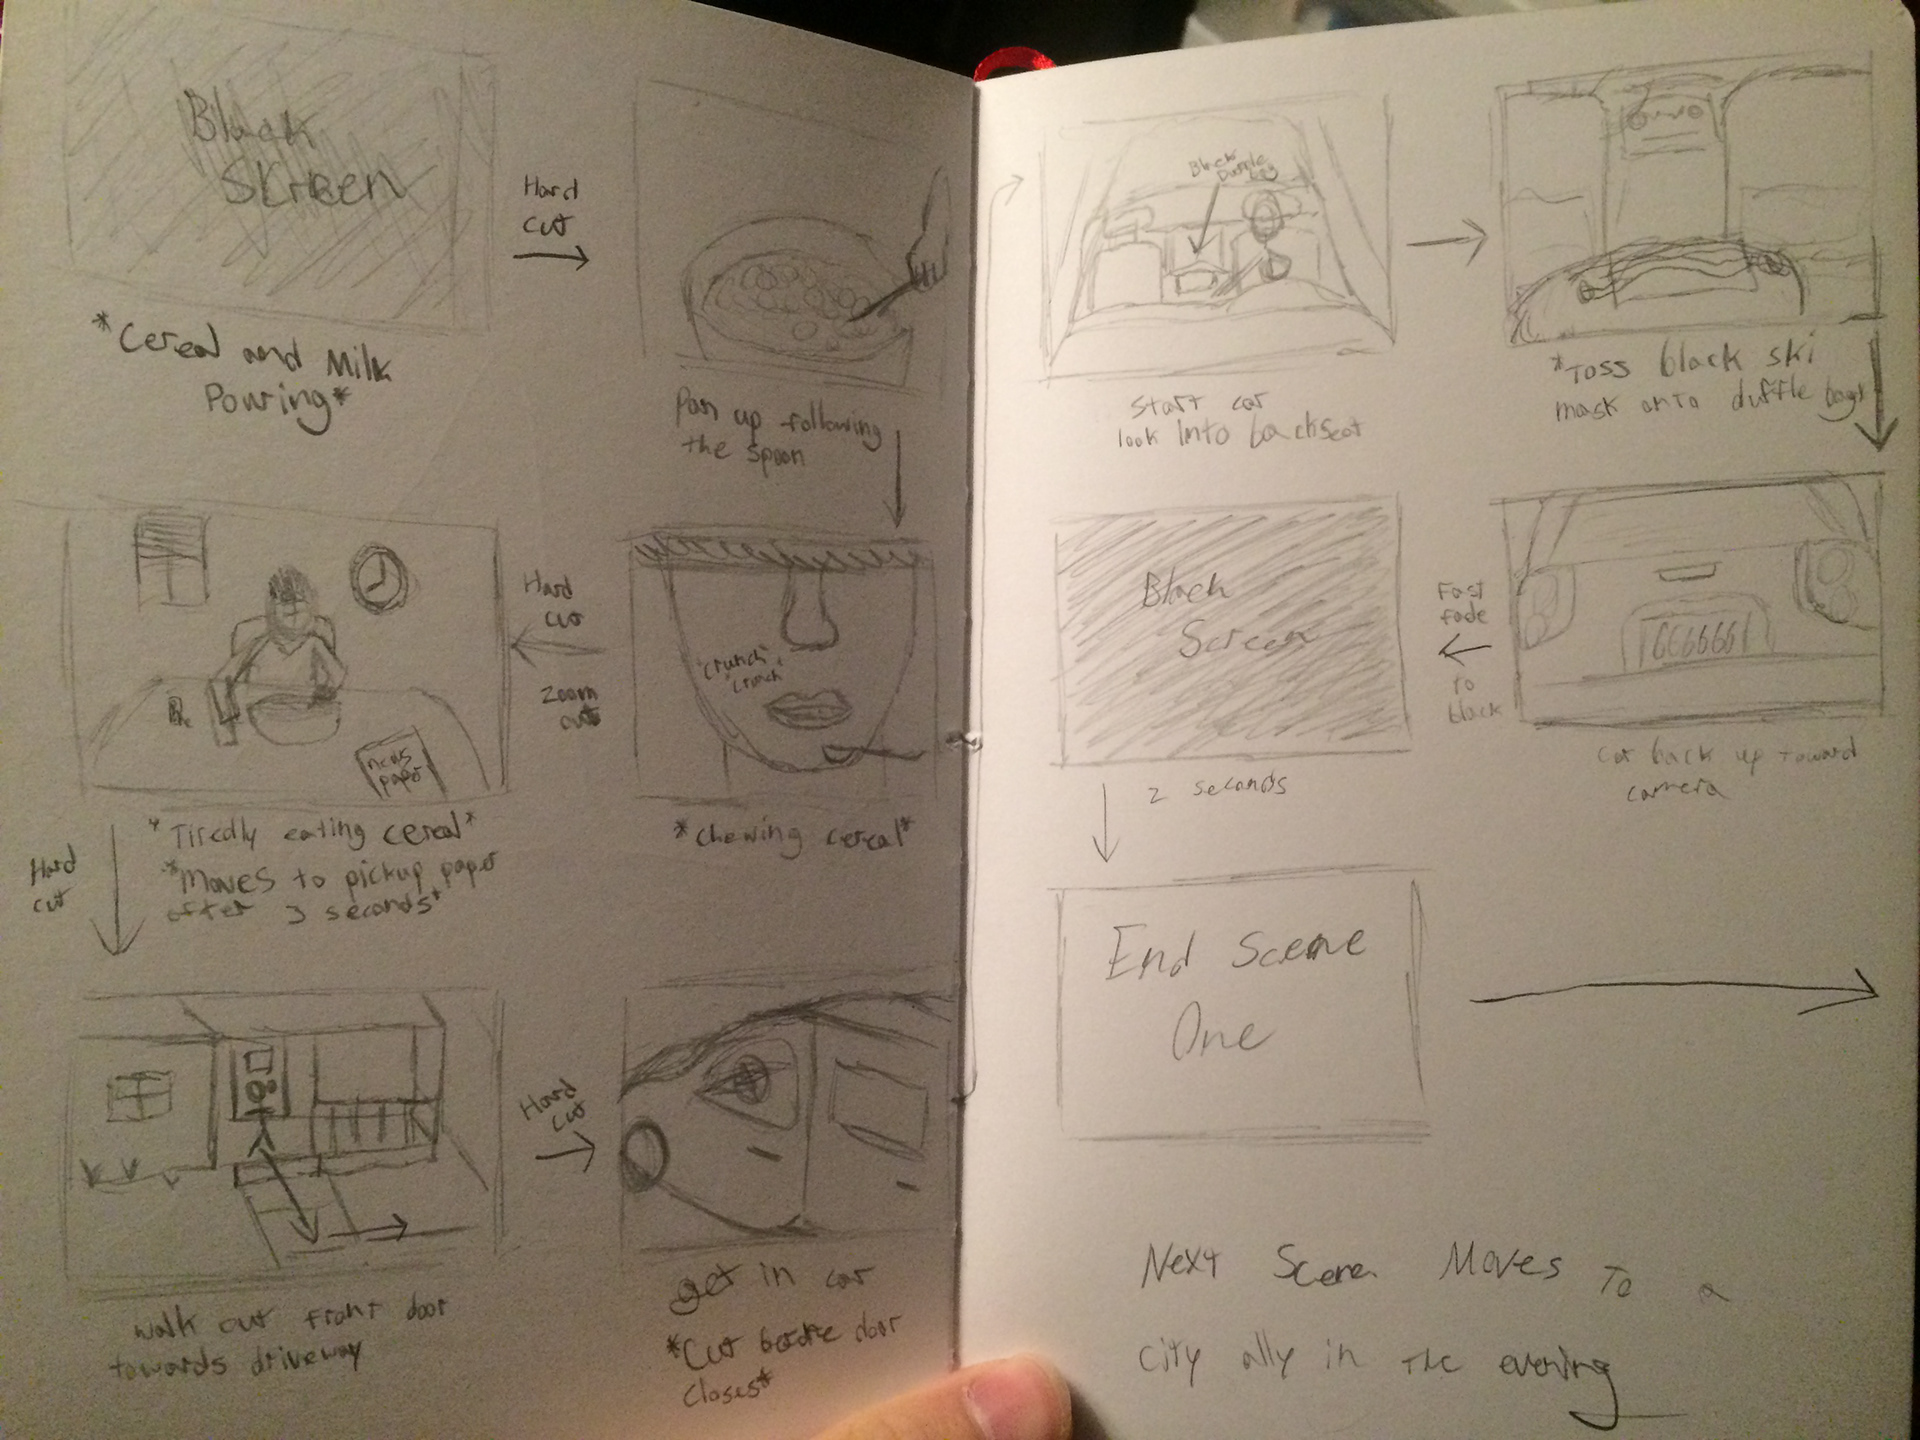 Black
Skreen
*Cereal and Milk
Pouring*
Hard
cut
Pan up following
the spoon
"crunch"
"crunch"
*chewing cereal*
Hard
cut
Zoom
out
news
paper
*Tiredly eating cereal*
*Moves to pickup paper
after 3 seconds*
Hard
cut
walk out front door
towards driveway
Hard
cut
get in car
*Cut before door
closes*
Black
Duffle
Bag
Start car
look into backseat
*Toss black ski
mask onto duffle bag*
car back up toward
camera
Fast
fade
to
black
Black
Screen
2 seconds
End Scene
One
Next Scene Moves To a
city ally in the evening